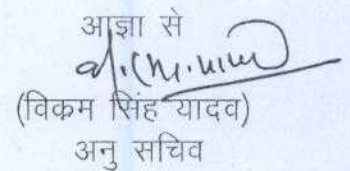 आज्ञा से
(विक्रम सिंह यादव)
अनु सचिव